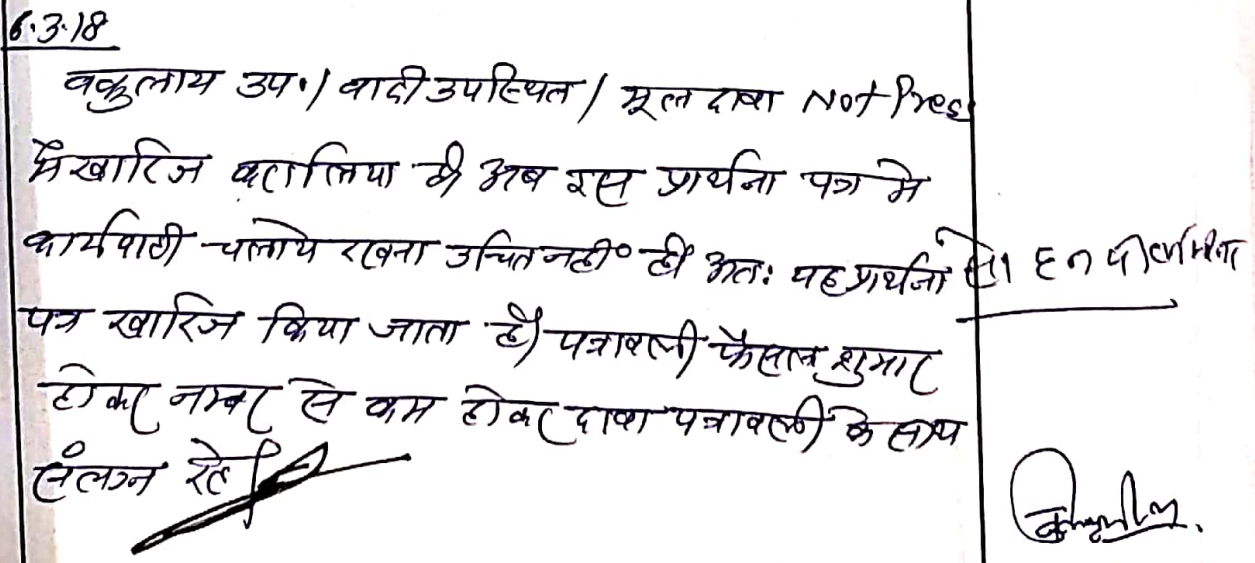 6.3.18
वकुलाय उप.। वादी उपस्थित। मूल दावा Not Press
में खारिज करा लिया है अब इस प्रार्थना पत्र मे
कार्यवाही चलाये रखना उचित नहीं है अतः यह प्रार्थना
पत्र खारिज किया जाता है। पत्रावली फैसल शुमार
होकर नम्बर से कम होकर दावा पत्रावली के साथ
संलग्न रहे।